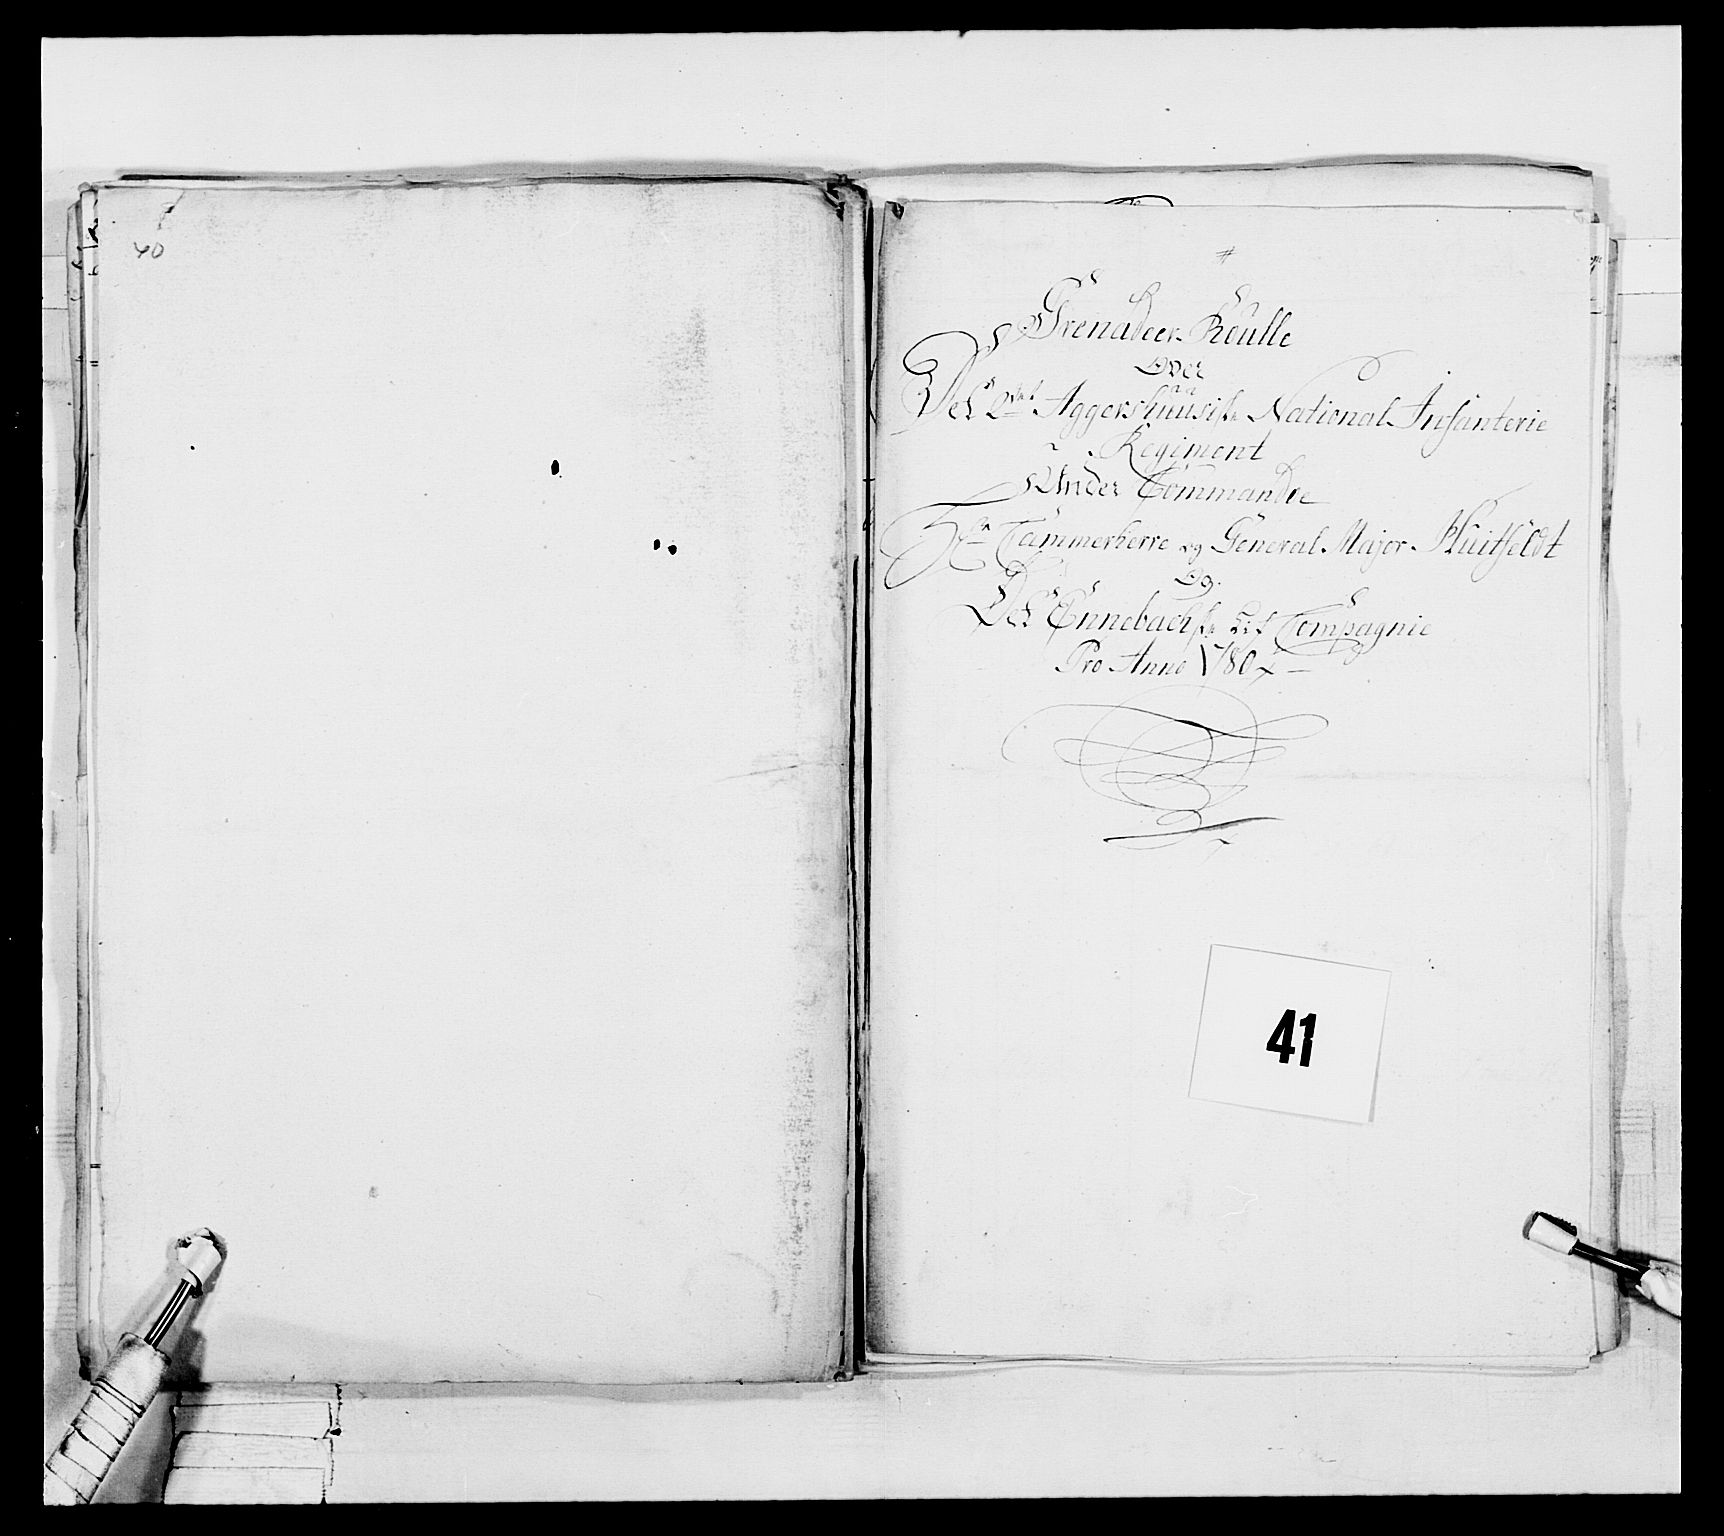 40
#
Grenadeer-Roulle
Over
Det 2det Aggershuusiske National Infanterie
Regiment
Under Commandoe
Hr Cammerherre og General Major Huitfeldt
Og
Det Ennebachske Lif Compagnie
Pro Anno 1780
41